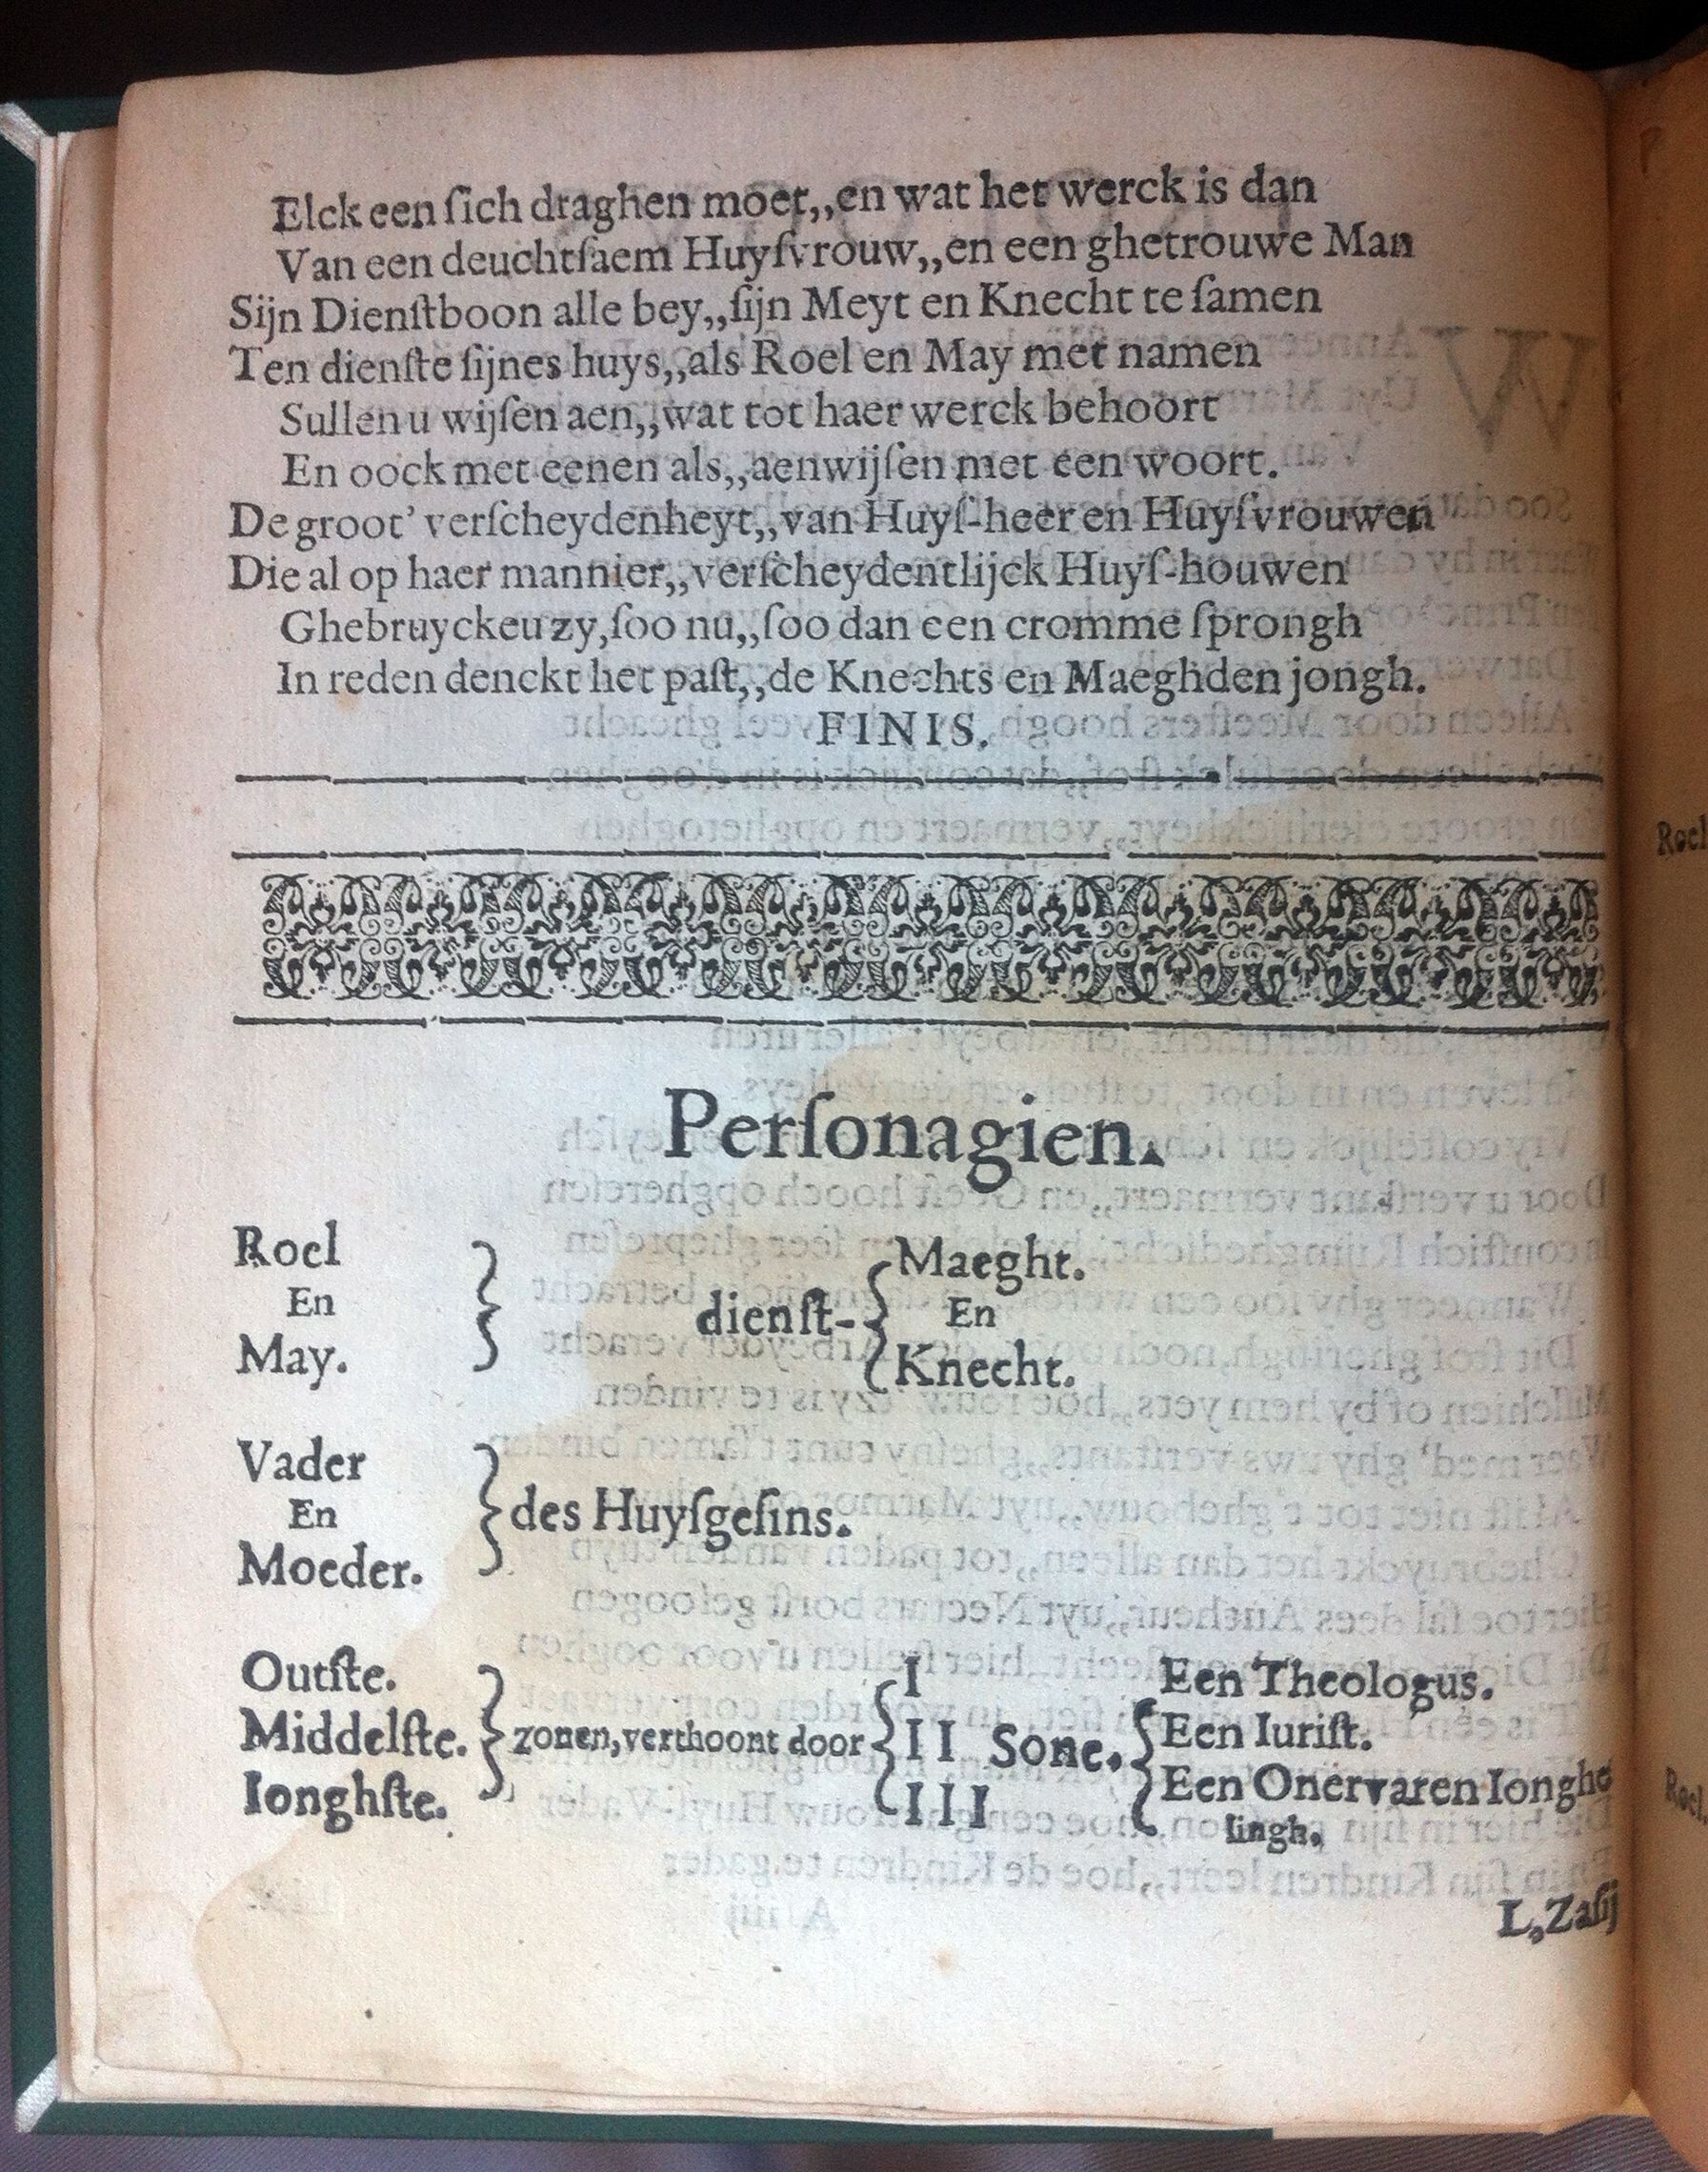 Elck een ſich draghen moet,,en wat het werck is dan
Van een deuchtſaem Huyſvrouw,,en een ghetrouwe Man
Sijn Dienſtboon alle bey,,ſijn Meyt en Knecht te ſamen
Ten dienſte ſijnes huys,,als Roel en May met namen
Sullen u wijſen aen,,wat tot haer werck behoort
En oock met eenen als,,aenwijſen met een woort.
De groot' verſcheydenheyt,,van Huyſ-heer en Huyſvrouwen
Die al op haer mannier,,verſcheydentlijck Huyſ-houwen
Ghebruycken zy, ſoo nu,,ſoo dan een cromme ſprongh
In reden denckt het paſt,,de Knechts en Maeghden jongh.
FINIS.
Perſonagien.
Roel
En
May.
dienſt-
Maeght.
En
Knecht.
Vader
En
Moeder.
des Huyſgeſins.
Outſte.
Middelſte.
Ionghſte.
zonen, verthoont door
I
II
III
Sone.
Een Theologus.
Een Iuriſt.
Een Onervaren Ionghe
lingh.
L. Zaſij
Roel
Roel.